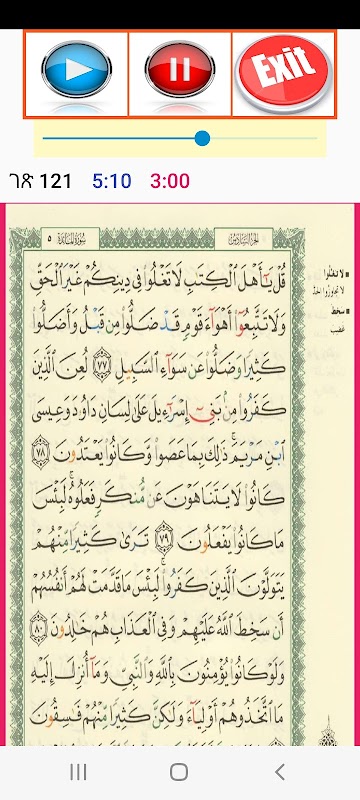 Exit
ገጽ 121 5:10 3:00
سورة المائدة ٥
الجزء السادس
قُلْ يَـٰٓأَهْلَ ٱلْكِتَـٰبِ لَا تَغْلُوا۟ فِى دِينِكُمْ غَيْرَ ٱلْحَقِّ
وَلَا تَتَّبِعُوٓا۟ أَهْوَآءَ قَوْمٍ قَدْ ضَلُّوا۟ مِن قَبْلُ وَأَضَلُّوا۟
كَثِيرًا وَضَلُّوا۟ عَن سَوَآءِ ٱلسَّبِيلِ ٧٧ لُعِنَ ٱلَّذِينَ
كَفَرُوا۟ مِنۢ بَنِىٓ إِسْرَٰٓءِيلَ عَلَىٰ لِسَانِ دَاوُۥدَ وَعِيسَى
ٱبْنِ مَرْيَمَ ۚ ذَٰلِكَ بِمَا عَصَوا۟ وَّكَانُوا۟ يَعْتَدُونَ ٧٨
كَانُوا۟ لَا يَتَنَاهَوْنَ عَن مُّنكَرٍ فَعَلُوهُ ۚ لَبِئْسَ
مَا كَانُوا۟ يَفْعَلُونَ ٧٩ تَرَىٰ كَثِيرًا مِّنْهُمْ
يَتَوَلَّوْنَ ٱلَّذِينَ كَفَرُوا۟ ۚ لَبِئْسَ مَا قَدَّمَتْ لَهُمْ أَنفُسُهُمْ
أَن سَخِطَ ٱللَّهُ عَلَيْهِمْ وَفِى ٱلْعَذَابِ هُمْ خَـٰلِدُونَ ٨٠
وَلَوْ كَانُوا۟ يُؤْمِنُونَ بِٱللَّهِ وَٱلنَّبِىِّ وَمَآ أُنزِلَ إِلَيْهِ
مَا ٱتَّخَذُوهُمْ أَوْلِيَآءَ وَلَـٰكِنَّ كَثِيرًا مِّنْهُمْ فَـٰسِقُونَ
لا تغلوا
لا تجاوزوا الحد
سخط
غضب